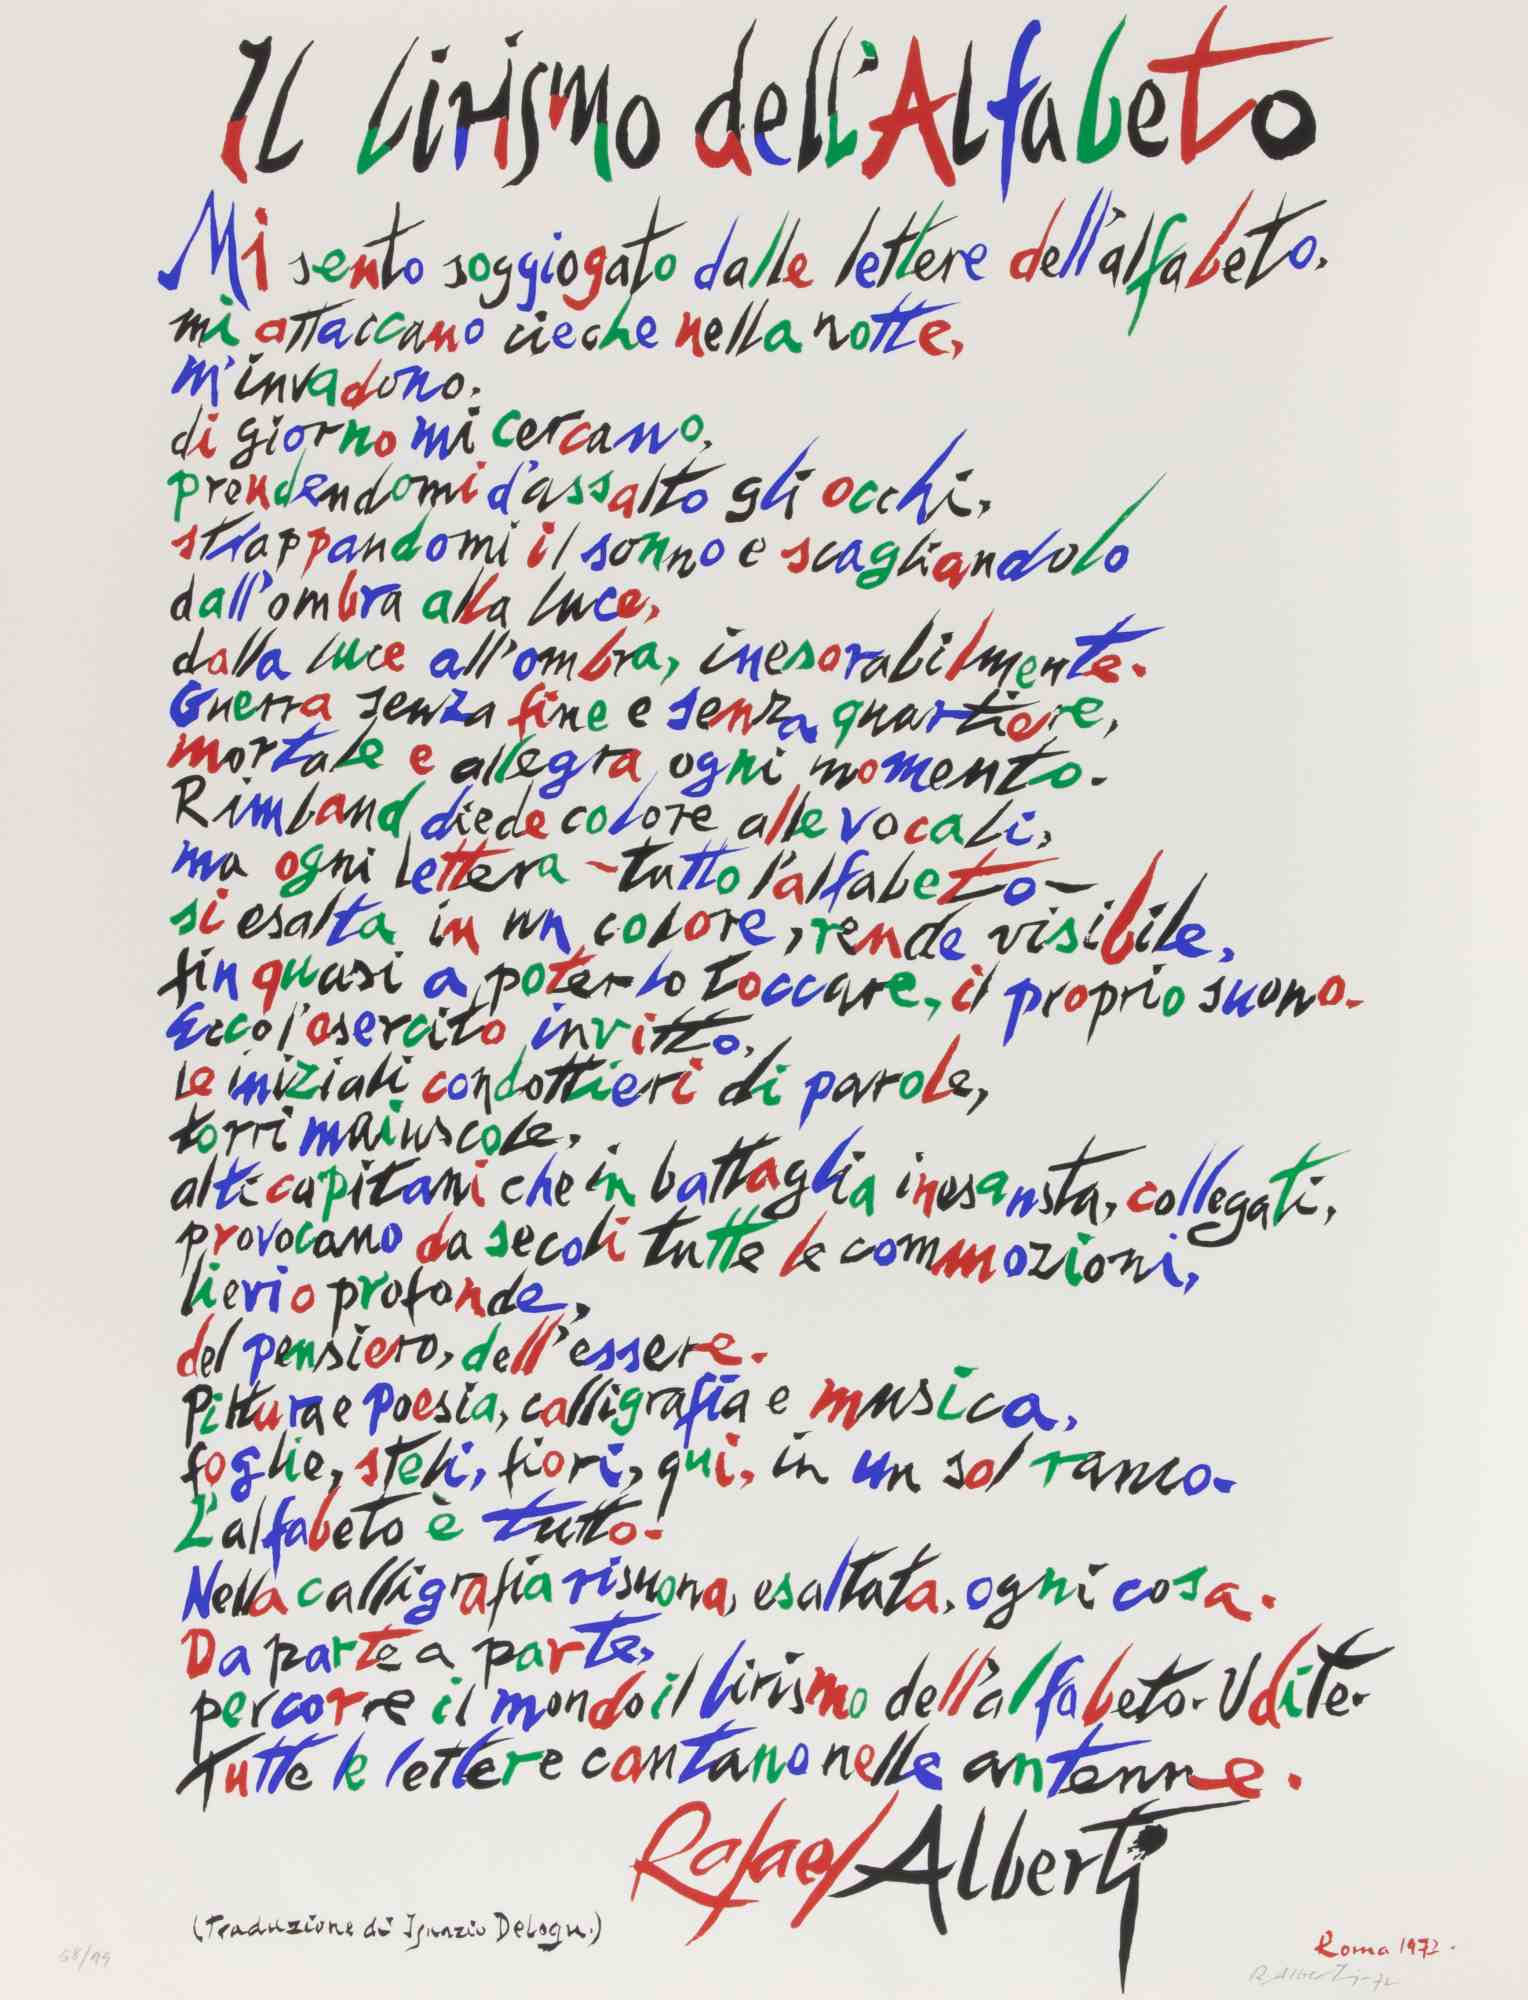 Il lirismo dell'Alfabeto
Mi sento soggiogato dalle lettere dell'alfabeto,
mi attaccano cieche nella notte,
m'invadono,
di giorno mi cercano,
prendendomi d'assalto gli occhi,
strappandomi il sonno e scagliandolo
dall'ombra alla luce,
dalla luce all'ombra, inesorabilmente.
Guerra senza fine e senza quartiere,
mortale e allegra ogni momento.
Rimbaud diede colore alle vocali,
ma ogni lettera - tutto l'alfabeto -
si esalta in un colore, rende visibile,
fin quasi a poterlo toccare, il proprio suono.
Ecco l'esercito invitto,
le iniziali condottieri di parole,
torri maiuscole,
alti capitani che in battaglia inesausta, collegati,
provocano da secoli tutte le commozioni,
lievi o profonde,
del pensiero, dell'essere.
Pittura e Poesia, calligrafia e musica,
foglie, steli, fiori, qui, in un sol ramo.
L'alfabeto è tutto.
Nella calligrafia risuona, esaltata, ogni cosa.
Da parte a parte,
percorre il mondo il lirismo dell'alfabeto. Udite.
Tutte le lettere cantano nelle antenne.
Rafael Alberti
(Traduzione di Ignazio Delogu.)
Roma 1972.
58/99
R. Alberti-72